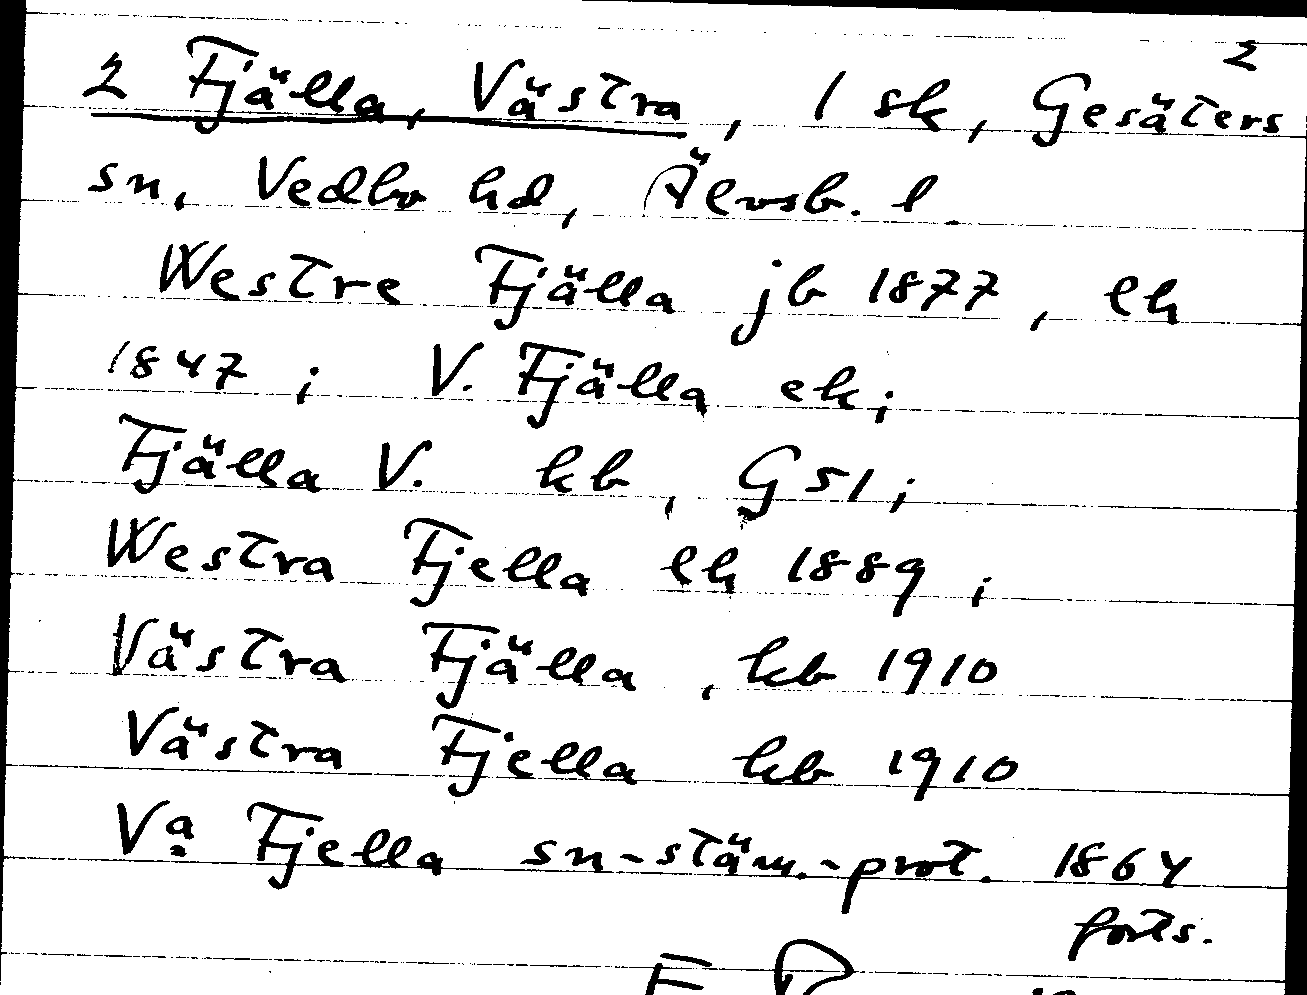 2
2 Fjälla, Västra, 1 sk, Gesäters
sn, Vedbo hd, Älvsb. l.
Westre Fjälla jb 1877, lh
1847; V. Fjälla ek;
Fjälla V. kb, G51;
Westra Fjella lh 1889;
Västra Fjälla, kb 1910
Västra Fjella kb 1910
Va Fjella sn-stäm.-prot. 1864
forts.